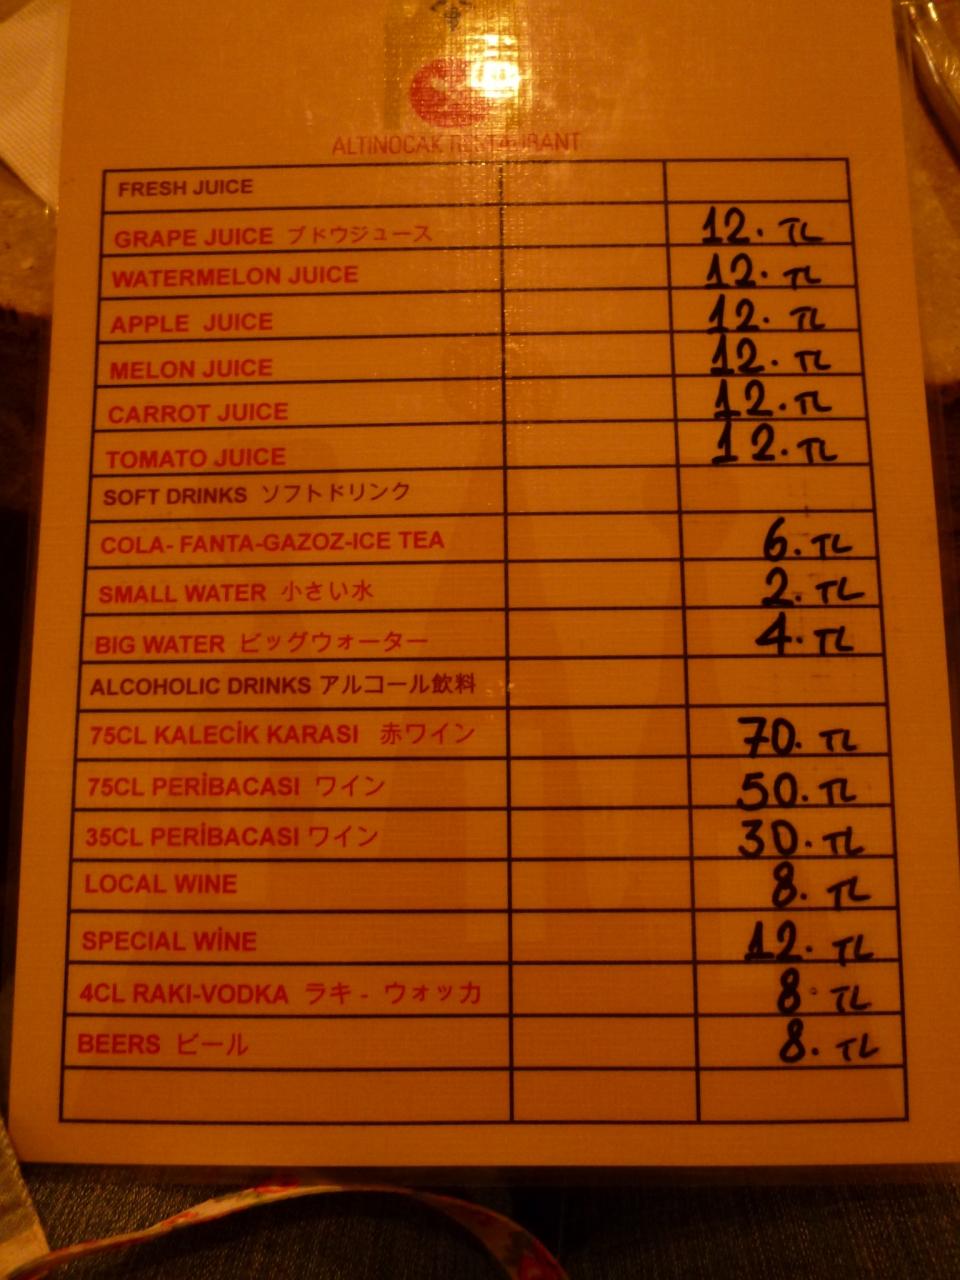 ALTINOCAK RESTAURANT
FRESH JUICE
GRAPE JUICE ブドウジュース 12. TL
WATERMELON JUICE 12. TL
APPLE JUICE 12. TL
MELON JUICE 12. TL
CARROT JUICE 12. TL
TOMATO JUICE 12. TL
SOFT DRINKS ソフトドリンク
COLA- FANTA-GAZOZ-ICE TEA 6. TL
SMALL WATER 小さい水 2. TL
BIG WATER ビッグウォーター 4. TL
ALCOHOLIC DRINKS アルコール飲料
75CL KALECİK KARASI 赤ワイン 70. TL
75CL PERİBACASI ワイン 50. TL
35CL PERİBACASI ワイン 30. TL
LOCAL WINE 8. TL
SPECIAL WİNE 12. TL
4CL RAKI-VODKA ラキ - ウォッカ 8. TL
BEERS ビール 8. TL